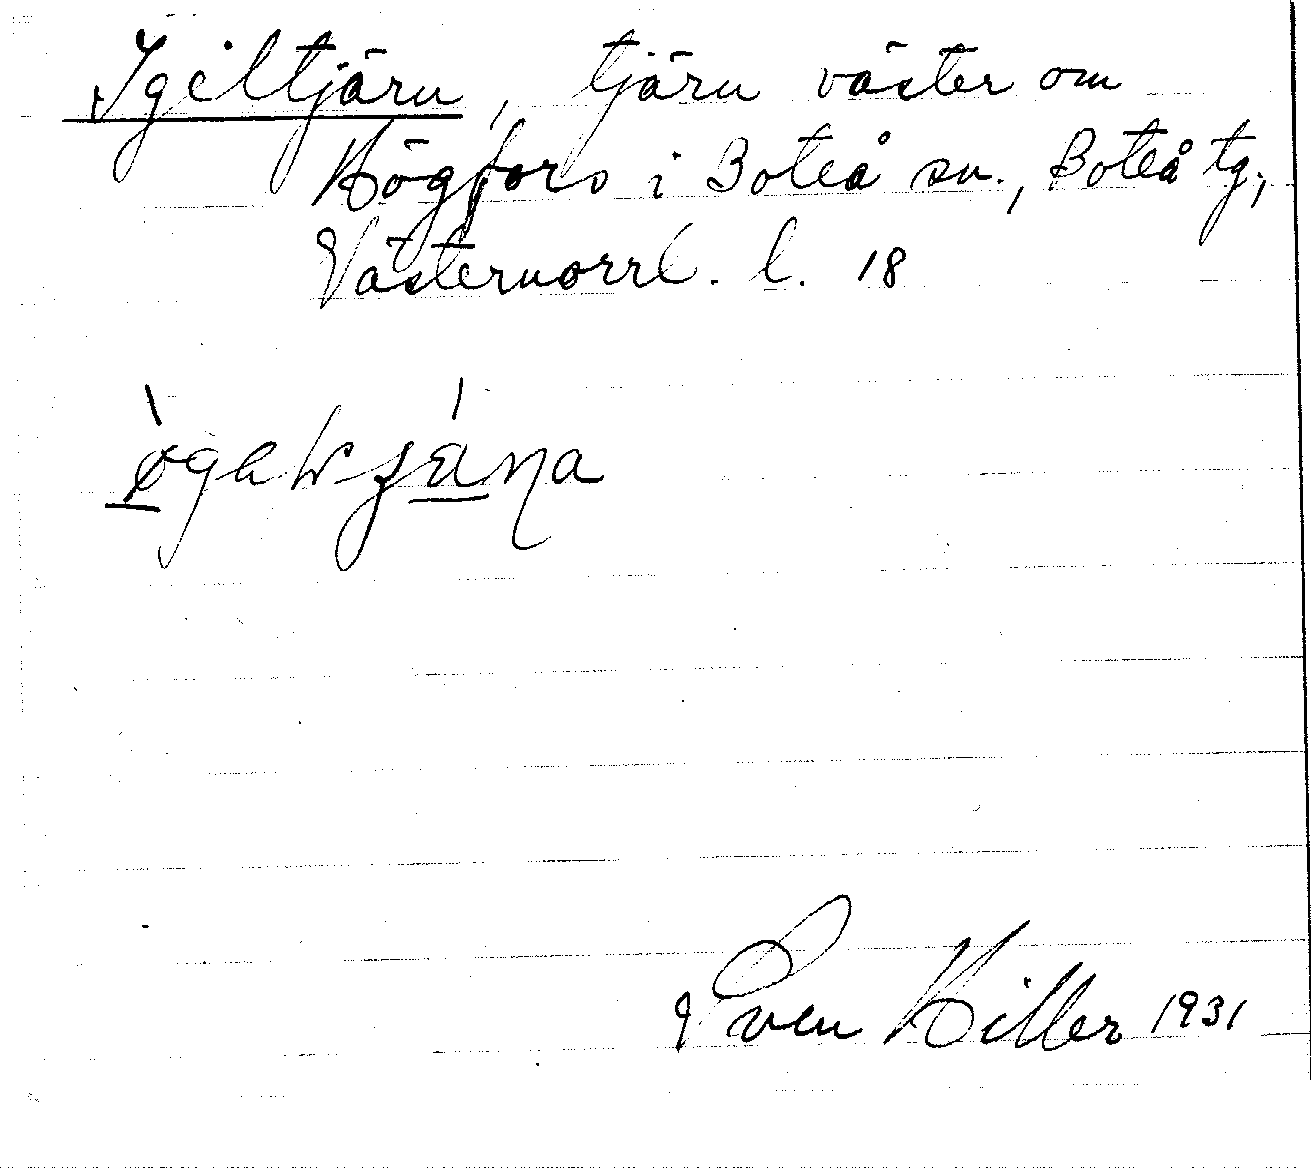 Igeltjärn, tjärn väster om
Högfors i Boteå sn., Boteå tg.,
Västernorrl. l. 18
Sven Hiller 1931